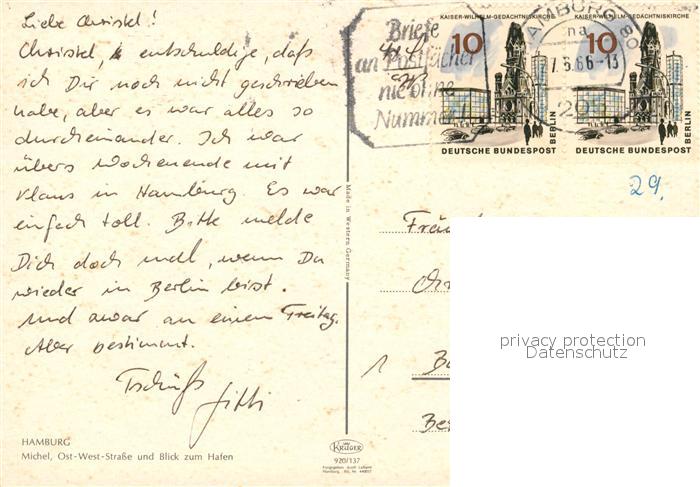 Liebe Christel!
Christel, entschuldige, daß
ich Dir noch nicht geschrieben
habe, aber es war alles so
durcheinander. Ich war
übers Wochenende mit
Klaus in Hamburg. Es war
einfach toll. Bitte melde
Dich doch mal, wenn Du
wieder in Berlin bist.
Und zwar an einem Freitag.
Aber bestimmt.
Tschüß
Gitti
HAMBURG
Michel, Ost-West-Straße und Blick zum Hafen
Made in Western Germany
KRÜGER
920/137
Briefe
an Postfächer
nie ohne
Nummer!
HAMBURG 80
na
7.6.66-13
KAISER-WILHELM-GEDÄCHTNISKIRCHE
10
BERLIN
DEUTSCHE BUNDESPOST
KAISER-WILHELM-GEDÄCHTNISKIRCHE
10
BERLIN
DEUTSCHE BUNDESPOST
29.
1
privacy protection
Datenschutz